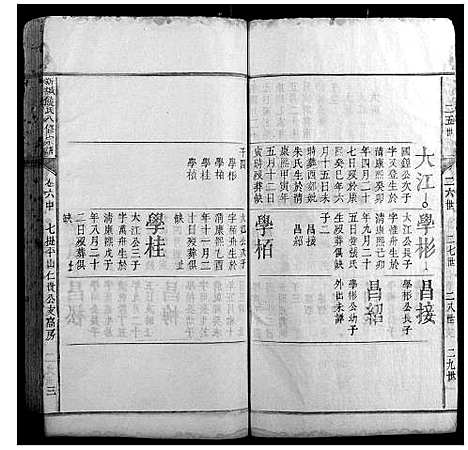 二五世 二六世 二七世 二八世 二九世
大江
國鍾公次子
字天登生於
清康熙癸卯
年四月二十
七日歿於康
熙癸巳年六
月十五日酉
時葬西郊虵
朱氏生於清
康熙甲寅年
五月十二日
寅時歿葬俱
缺
子四
學彬
學栢
學桂
學楨
學彬
大江公長子
字惟舟生於
清康熙己卯
年九月二十
五日娶張氏
生歿葬俱缺
子二
昌接
昌紹
學栢
大江公次子
字栢舟生於
清康熙乙酉
年十一月二
十日歿葬俱
缺
學桂
大江公三子
字萬舟生於
清康熙戊子
年八月二十
二日歿葬俱
缺
昌接
學彬公長子
缺
昌紹
學彬公幼子
外出未詳
氏八修宗譜
卷六中
七提平山仁貴公支富房
三